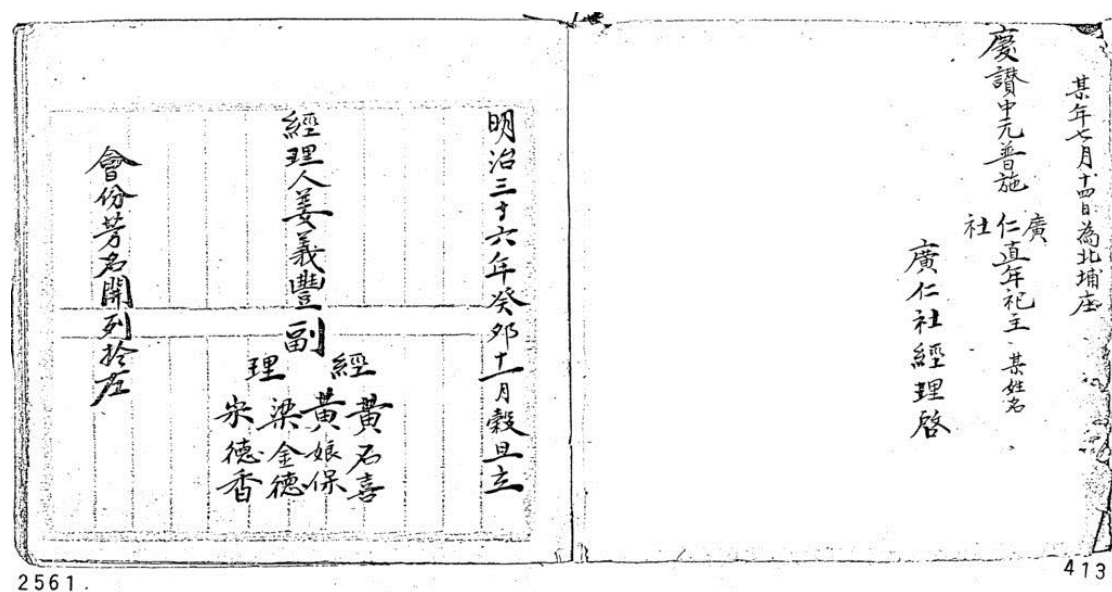 某年七月十四日為北埔庄
慶讚中元普施
廣仁社
直年祀主 某姓名
廣仁社經理啓
明治三十六年癸卯十一月穀旦立
經理人姜義豐副經理
黃石喜
黃娘保
梁金德
宋德香
會份芳名開列於左
2561.
413